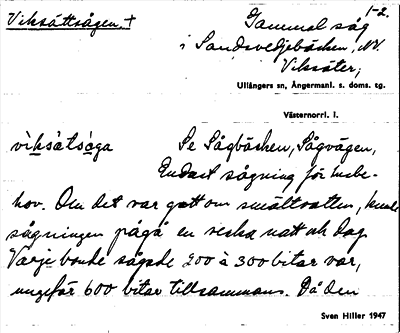 Viksättsågen, +
1-2.
Gammal såg
i Sandsvedjebäcken, NV.
Viksäter;
Ullångers sn, Ångermanl. s. doms. tg.
Västernorrl. l.
viksätsåga
Se Sågbäcken, Sågvägen,
Endast sågning för husbe-
hov. Om det var gott om smältvatten, kunde
sågningen pågå en vecka natt och dag
Varje bonde sågade 200 à 300 bitar var,
ungefär 600 bitar tillsammans. Då den
Sven Hiller 1947